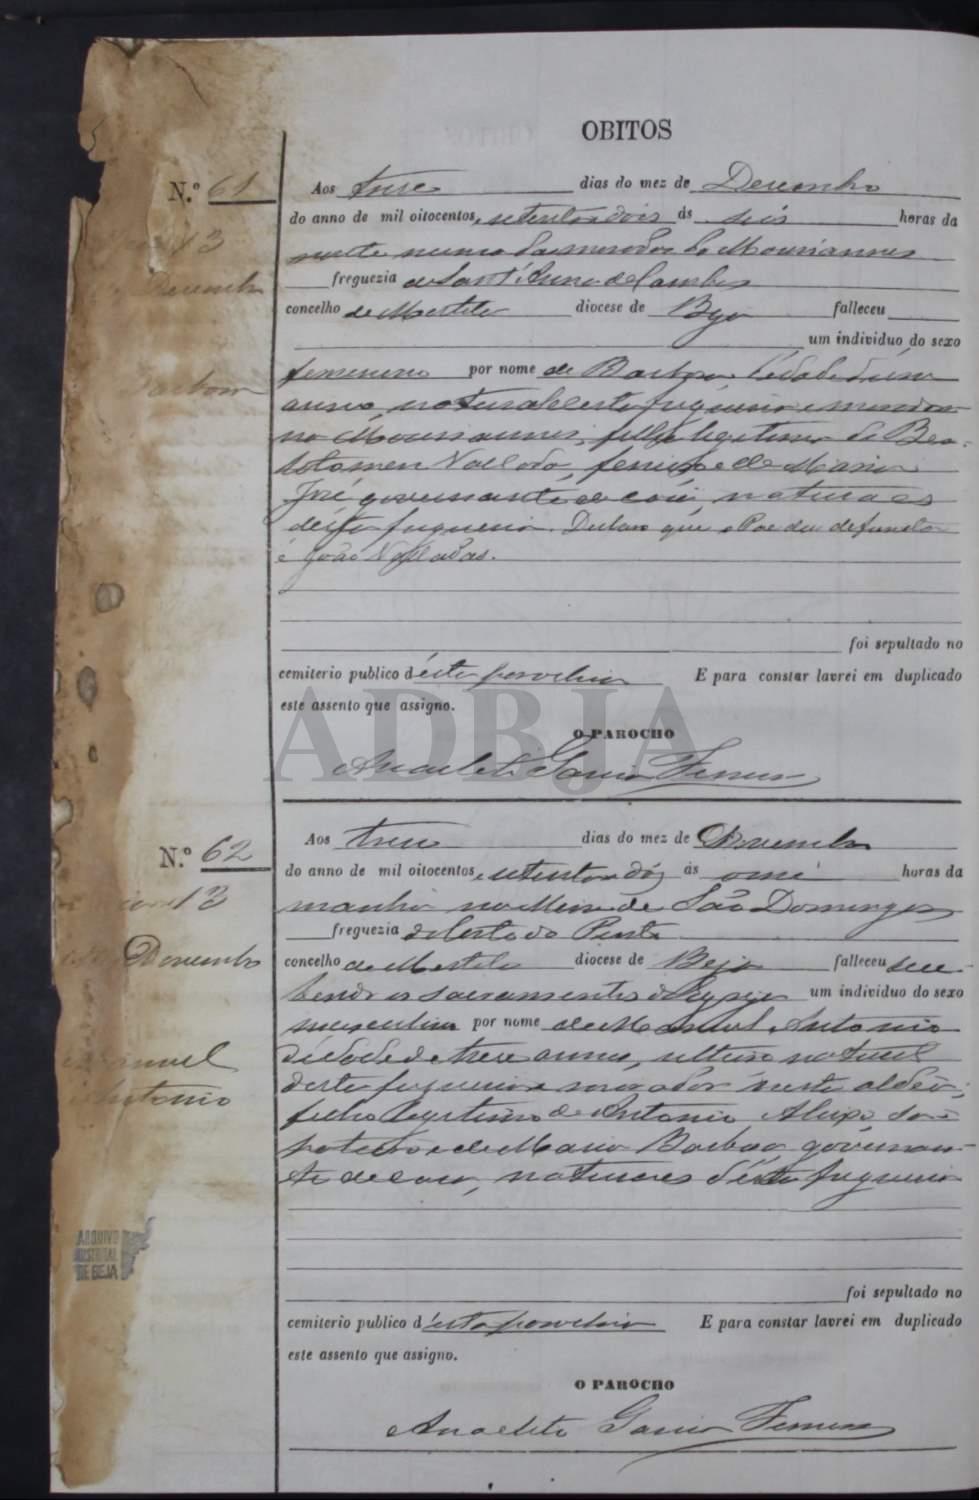 OBITOS
N.º 61
13
Dezembro
Barbora
Aos treze dias do mez de Dezembro
do anno de mil oitocentos, setenta e dois ás seis horas da
noute no
freguezia de Sant'Anna de Cambas
concelho de Mertola diocese de Beja falleceu
um individuo do sexo
femenino por nome de
annos, natural desta freguezia e morador
filha legitima de Bar-
tolomeu e de Maria
José governante de casa, naturaes
desta freguezia. Declaro que o Pae da defuncta
é João
foi sepultado no
cemiterio publico d'ésta parochia E para constar lavrei em duplicado
este assento que assigno.
O PAROCHO
Anacleto Garcia
N.º 62
13
Dezembro
Manuel
Antonio
Aos treze dias do mez de Dezembro
do anno de mil oitocentos, setenta e dois ás onze horas da
manhã na Mina de São Domingos
freguezia
concelho de Mertola diocese de Beja falleceu rece-
bendo os sacramentos da Egreja um individuo do sexo
masculino por nome de Manuel Antonio
d'edade de treze annos, solteiro natural
desta freguezia e morador nesta aldeia,
filho legitimo de Antonio
e de Maria Barbara governan-
te de casa, naturaes d'esta freguezia
foi sepultado no
cemiterio publico d'ésta parochia E para constar lavrei em duplicado
este assento que assigno.
O PAROCHO
Anacleto Garcia
ARQUIVO
DISTRITAL
DE BEJA
ADBJA